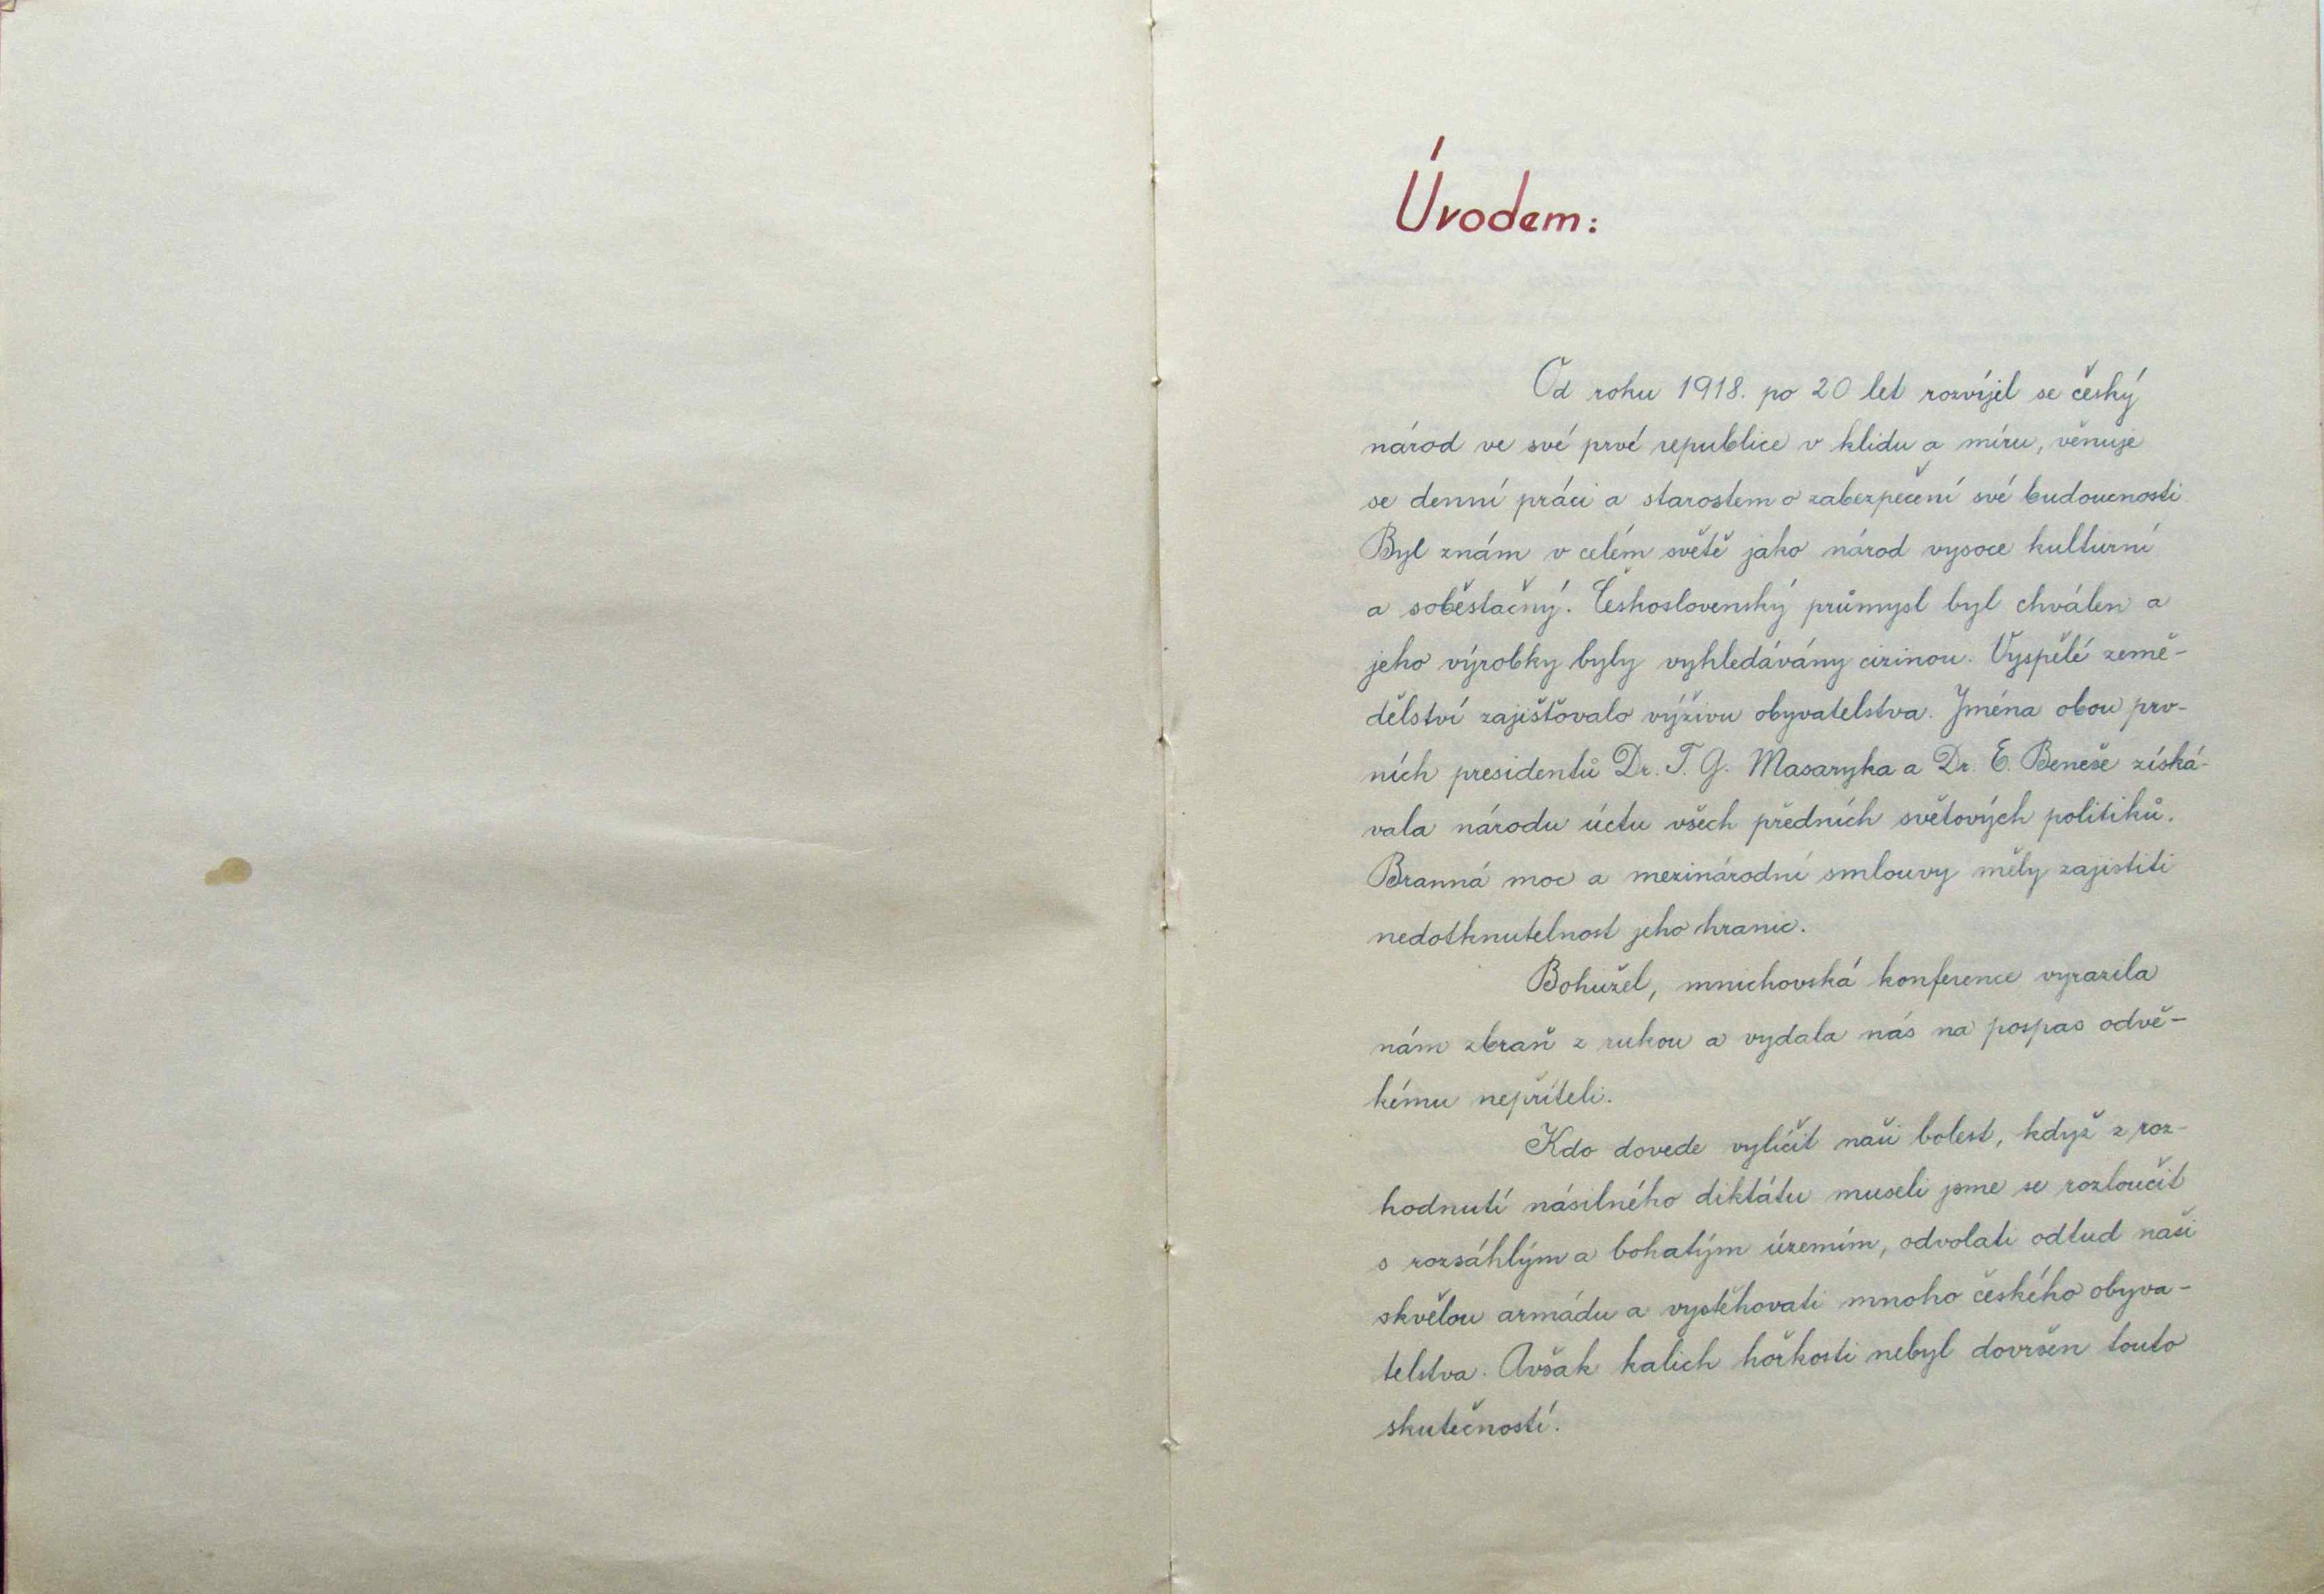 Úvodem:
Od roku 1918. po 20 let rozvíjel se český
národ ve své prvé republice v klidu a míru, věnuje
se denní práci a starostem o zabezpečení své budoucnosti
Byl znám v celém světě jako národ vysoce kulturní
a soběstačný. Československý průmysl byl chválen a
jeho výrobky byly vyhledávány cizinou. Vyspělé země-
dělství zajišťovalo výživu obyvatelstva. Jména obou prv-
ních presidentů Dr. T. G. Masaryka a Dr. E. Beneše získá-
vala národu úctu všech předních světových politiků.
Branná moc a mezinárodní smlouvy měly zajistiti
nedotknutelnost jeho hranic.
Bohužel, mnichovská konference vyrazila
nám zbraň z rukou a vydala nás na pospas odvě-
kému nepříteli.
Kdo dovede vylíčit naši bolest, když z roz-
hodnutí násilného diktátu museli jsme se rozloučit
s rozsáhlým a bohatým územím, odvolati odtud naši
skvělou armádu a vystěhovati mnoho českého obyva-
telstva. Avšak kalich hořkosti nebyl dovršen touto
skutečností.